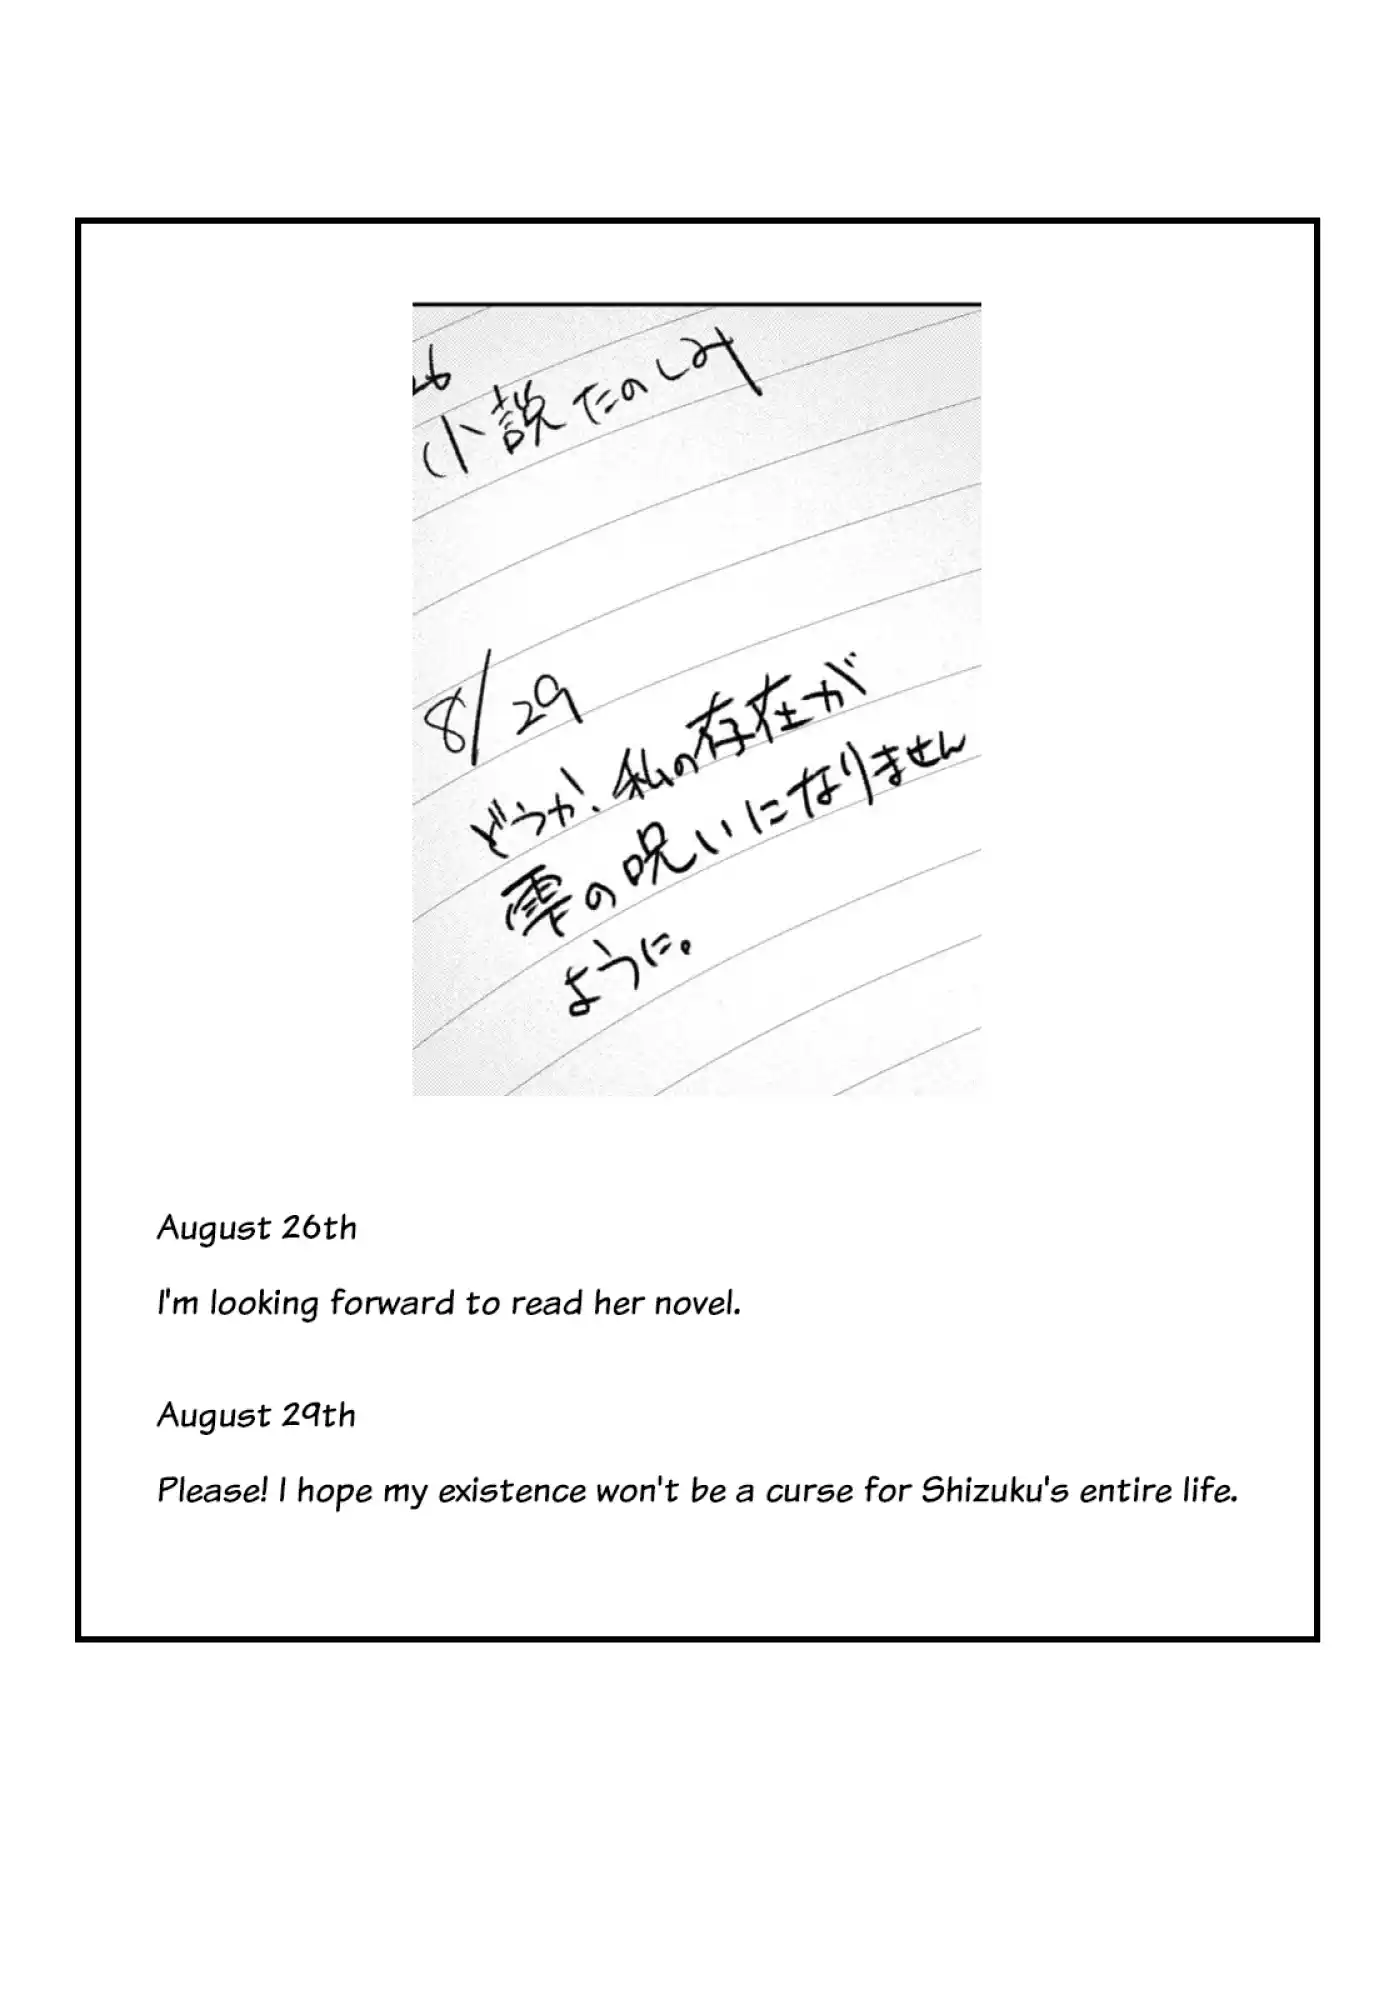 26
小説たのしみ
8/29
どうか、私の存在が
雫の呪いになりません
ように。
August 26th
I'm looking forward to read her novel.
August 29th
Please! I hope my existence won't be a curse for Shizuku's entire life.